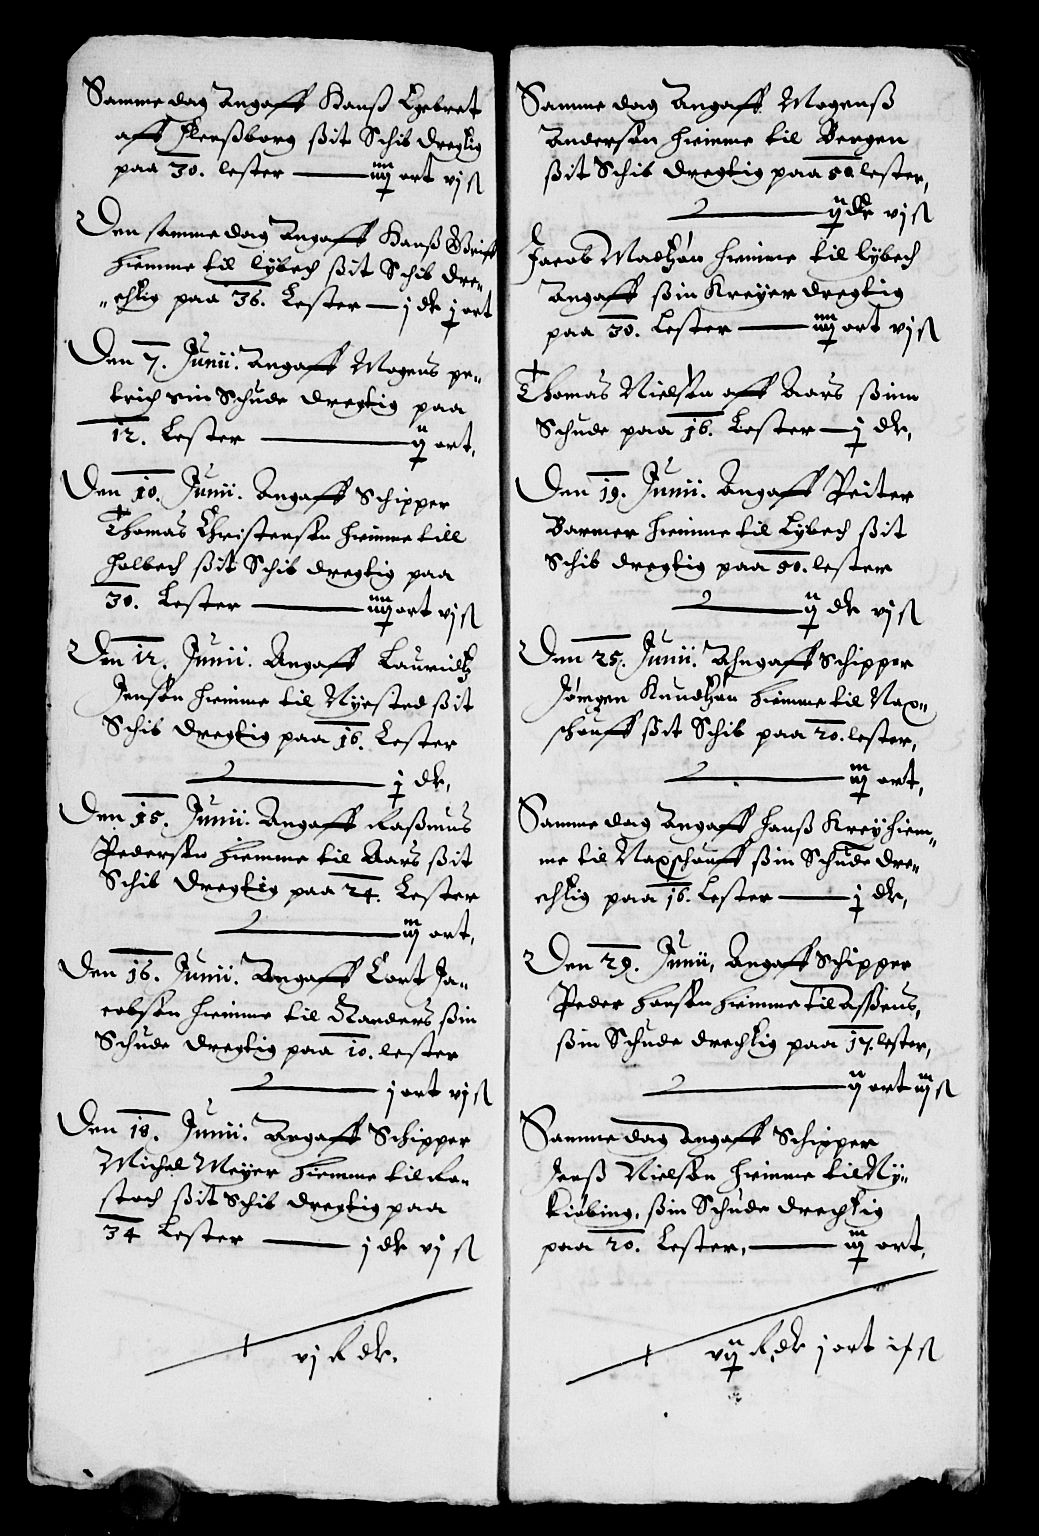 Samme dag Angaff Hanß Egebret
aff Flenßborg ßit Schib dregtig
paa 30. lester — iiij ort vj ſ
Den samme dag Angaff Hanß
hiemme til lybech ßit Schib dre„
„chtig paa 36. Lester — j dlr j ort
Den 7. Junii. Angaff Mogens pe„
trich sin Schude dregtig paa
12. Lester — ij ort,
Den 10. Junii. Angaff Schipper
Thomas Christensen hiemme till
Holbech ßit Schib dregtig paa
30. Lester — iiij ort vj ſ
Den 12. Junii. Angaff Lauridtz
Jensen hiemme til Nysted ßit
Schib dregtig paa 16. Lester
— j dlr,
Den 15. Junii. Angaff Raßmus
Pedersen hiemme til Aars ßit
Schib dregtig paa 24. Lester
— iij ort,
Den 16. Junii. Angaff Cort Ja„
cobsen hiemme til Randers ßin
Schude dregtig paa 10. lester
— j ort vj ſ
Den 18. Junii. Angaff Schipper
Michel Meyer hiemme til Ro„
stoch ßit Schib dregtig paa
34 Lester — j dlr vj ſ
vj R dlr.
Samme dag Angaff Mogenß
Andersen hiemme til Bergen
ßit Schib dregtig paa 50 lester,
— ij dlr vj ſ
Jacob Madtzøn hiemme til lybech
Angaff ßin Kreyer dregtig
paa 30. Lester — iiij ort vj ſ
Thomas Nielsen aff Aars ßinn
Schude paa 16. Lester — j dlr,
Den 19. Junii. Angaff Peiter
Barmer hiemme til Lybech ßit
Schib dregtig paa 50. lester
— ij dlr vj ſ
Den 25. Junii. Ahngaff Schipper
Jørgen Knudtzøn hiemme til Nax„
schouff ßit Schib paa 20. lester,
— iij ort,
Samme dag Angaff Hanß Krey hiem„
me til Naxschouff ßin Schude dre„
chtig paa 16. Lester — j dlr,
Den 29. Junii, Angaff Schipper
Peder Hansen hiemme til Assens,
ßin Schude drechtig paa 17. lester,
— ij ort iij ſ
Samme dag Angaff Schipper
Jenß Nielsen hiemme til Ny„
kiøbing, ßin Schude drechtig
paa 20. Lester, — iij ort,
vij R dlr j ort